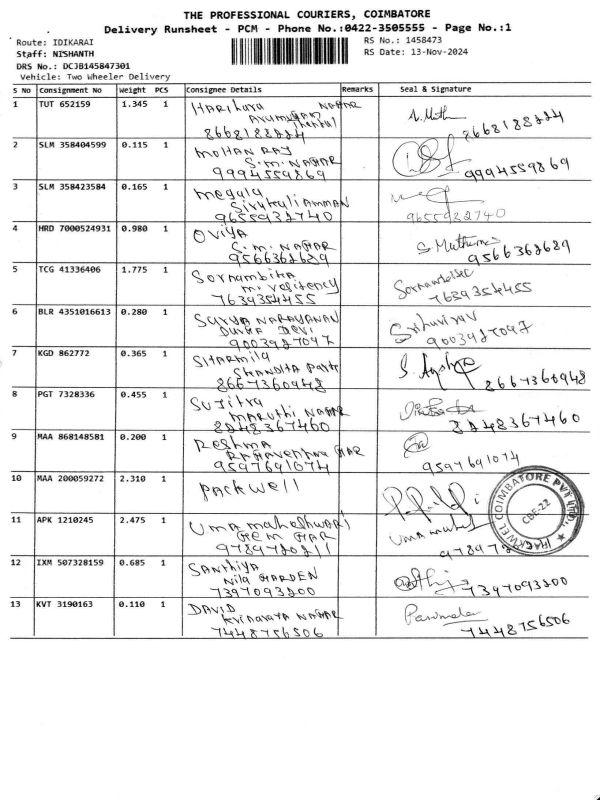 THE PROFESSIONAL COURIERS, COIMBATORE
Delivery Runsheet - PCM - Phone No.:0422-3505555 - Page No.:1
Route: IDIKARAI
RS No.: 1458473
Staff: NISHANTH
RS Date: 13-Nov-2024
DRS No.: DCJB145847301
Vehicle: Two Wheeler Delivery
S No Consignment No Weight PCS Consignee Details Remarks Seal & Signature
1 TUT 652159 1.345 1 Harihara NAGAR
8668188224 8668188224
2 SLM 358404599 0.115 1 MOHAN RAJ
S.M. NAGAR
9994559869 9994559869
3 SLM 358423584 0.165 1 Megala
9655932740 9655932740
4 HRD 7000524931 0.980 1 OViYA
S.M. NAGAR S Muthu
9566362689 9566362689
5 TCG 41336406 1.775 1 Sornambika
M. Residency
7639354455 7639354455
6 BLR 4351016613 0.280 1 SURYA NARAYANAN
DURGA DEVI
9003927097 9003927097
7 KGD 862772 0.365 1 SHARMILA
SHANDHA PARK
8667360948 8667360948
8 PGT 7328336 0.455 1 SUJITRA
MARUTHI NAGAR
8248367460 8248367460
9 MAA 868148581 0.200 1 Reshma
9597691074 9597691074
10 MAA 200059272 2.310 1 PACKWELL
PACKWEL COIMBATORE PVT LTD.,
CBE-22
11 APK 1210245 2.475 1 UMA Maheshwari
GEM
9789720211
12 IXM 507328159 0.685 1 SANTHIYA
Nila GARDEN
7397093200 7397093200
13 KVT 3190163 0.110 1 DAVID
NAGAR
7448756506 7448756506